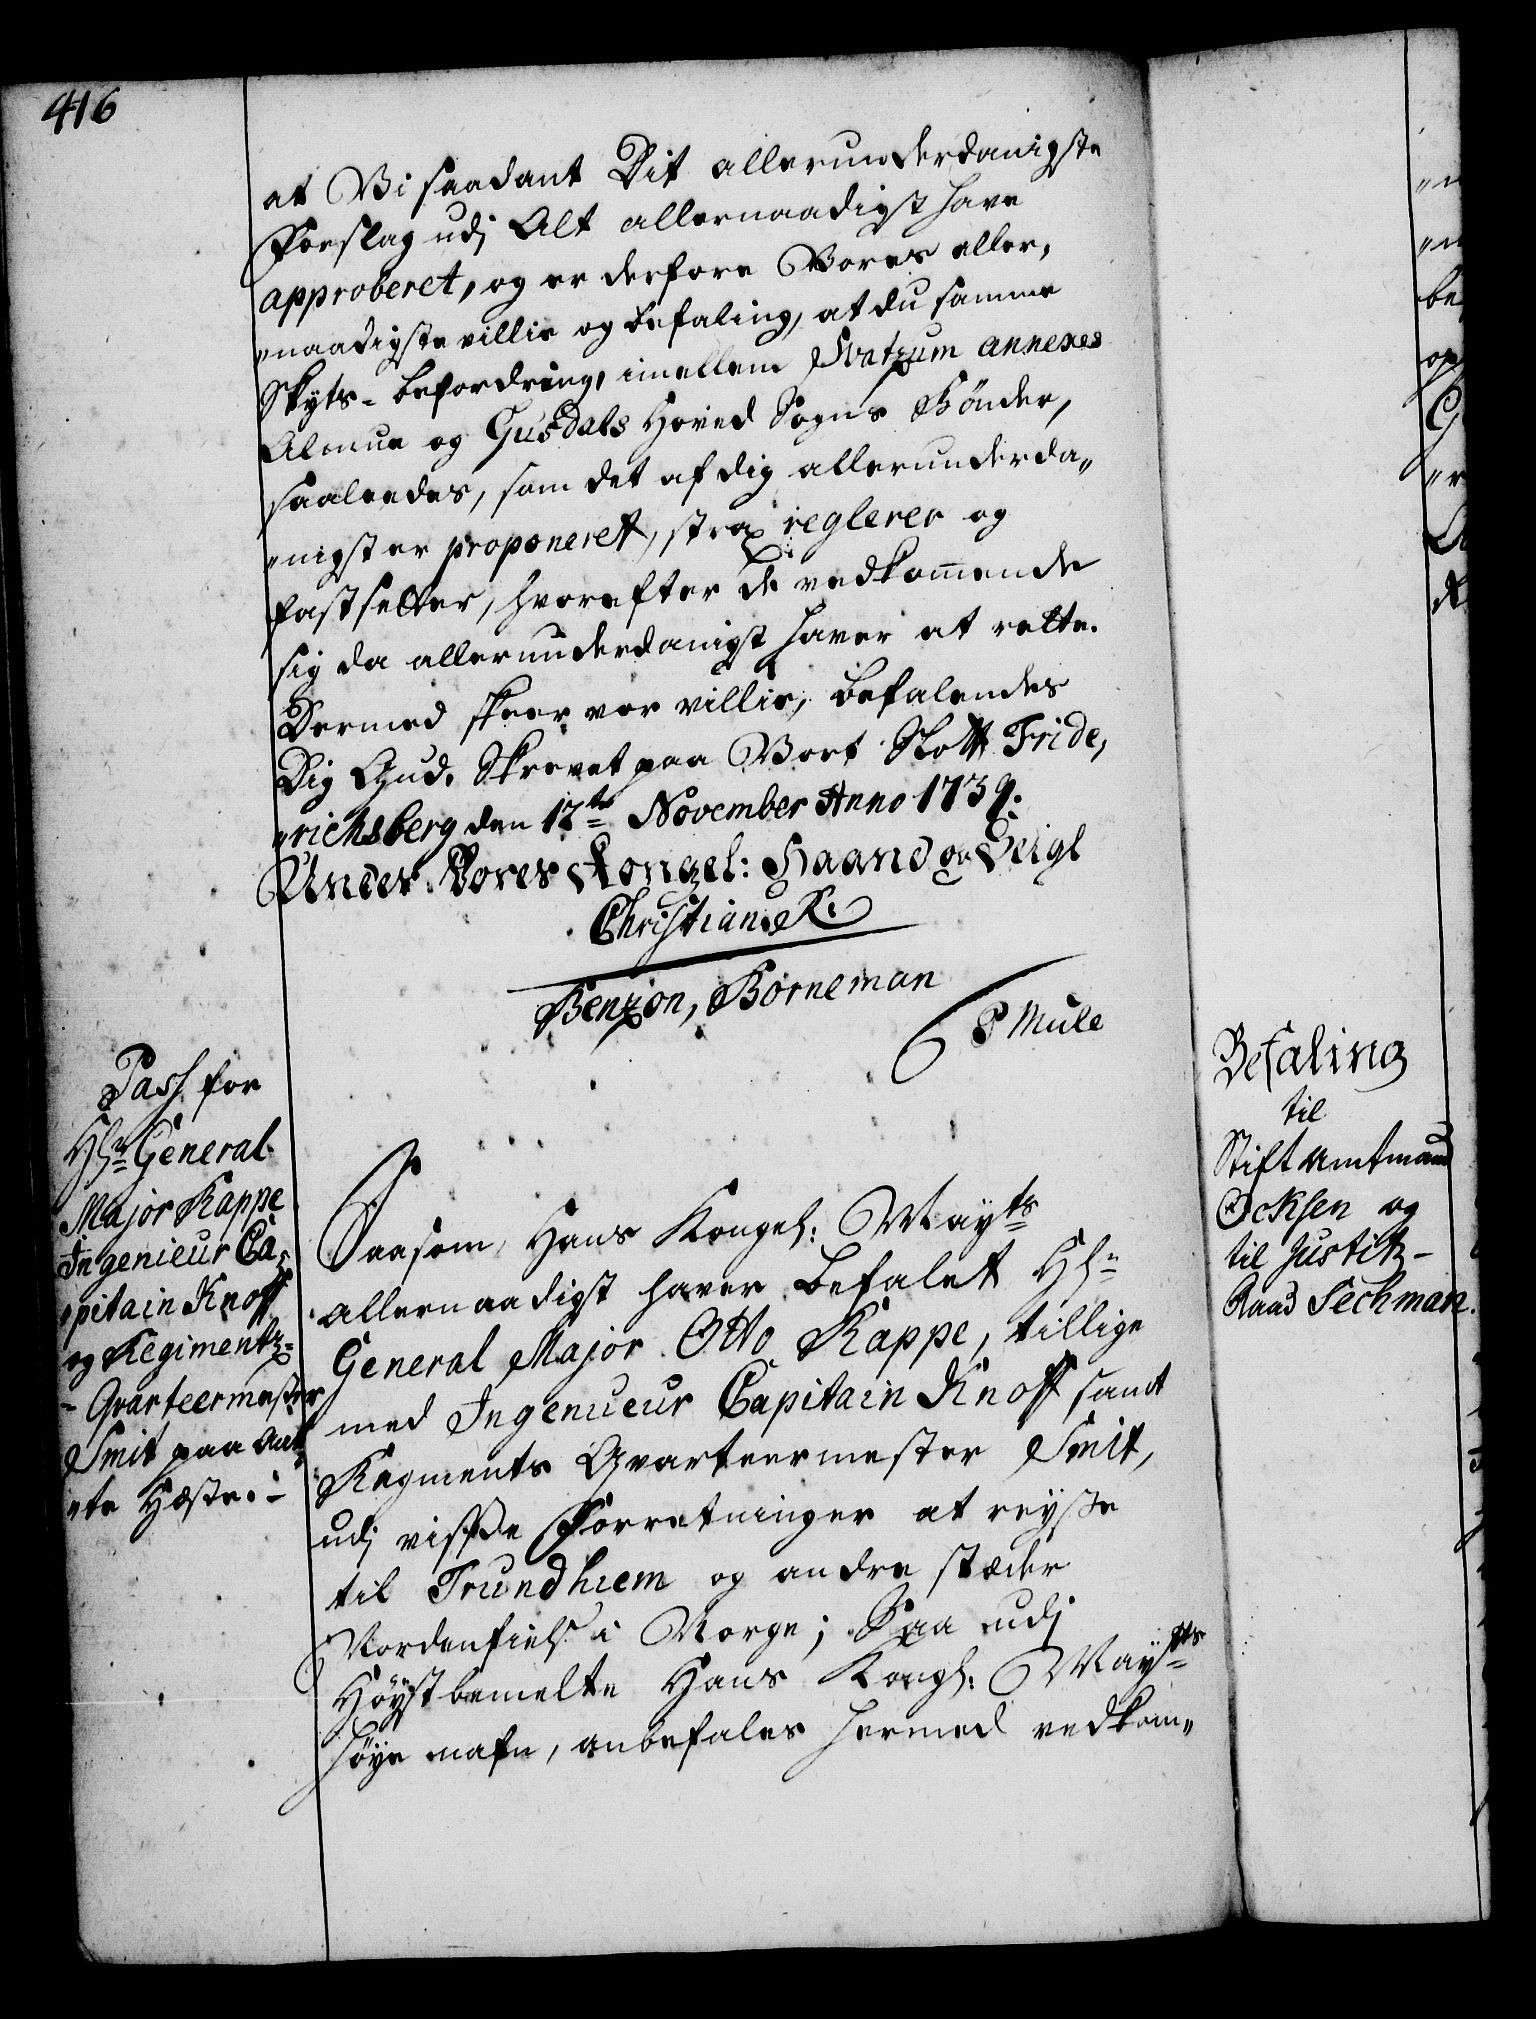 416
at Vi saadant Dit allerunderdanigste
Forslag udj Alt allernaadigst have
approberet, og er derfore Vores aller,
„naadigste villie og befaling, at du samme
Skyts-befordring, imellem Svatzum annexes
Almue og Gusdals Hoved Sogns Bönder,
saaleedes, som det af dig allerunderda„
„nigst er proponeret, strax reglerer og
fastsetter, hvorefter de vedkom̄ende
sig da allerunderdanigst haver at rette.
Dermed skeer vor villie, Befalendes
Dig Gud. Skrevet paa Vort Slott Fride,
„richsberg den 12te November Anno 1739.
Under Vores Kongel: Haand og Seigl
Christian R.
Benzon, Borneman
P Mule
Pash for
Hr. General
Major Rappe
Ingenieur Ca„
„pitain Knoff
og Regimentz-
- Qvarteermester
Smit paa Aat„
„te Hæste.-
Saasom, Hans Kongel: Mayts
allernaadigst haver befalet Hr.
General Major Otto Rappe, tillige
med Ingenieur Capitain Knoff samt
Regments Qvarteermester Smit,
udj visse Forretninger at reyse
til Trundhiem og andre stæder
Nordenfiels i Norge; Saa udj
Höystbemelte Hans Kongl: Mayts
höye nafn, anbefales hermed vedkom„
Befaling
til
Stift Amtmand
Ocksen og
til Justitz-
Raad Sechman.